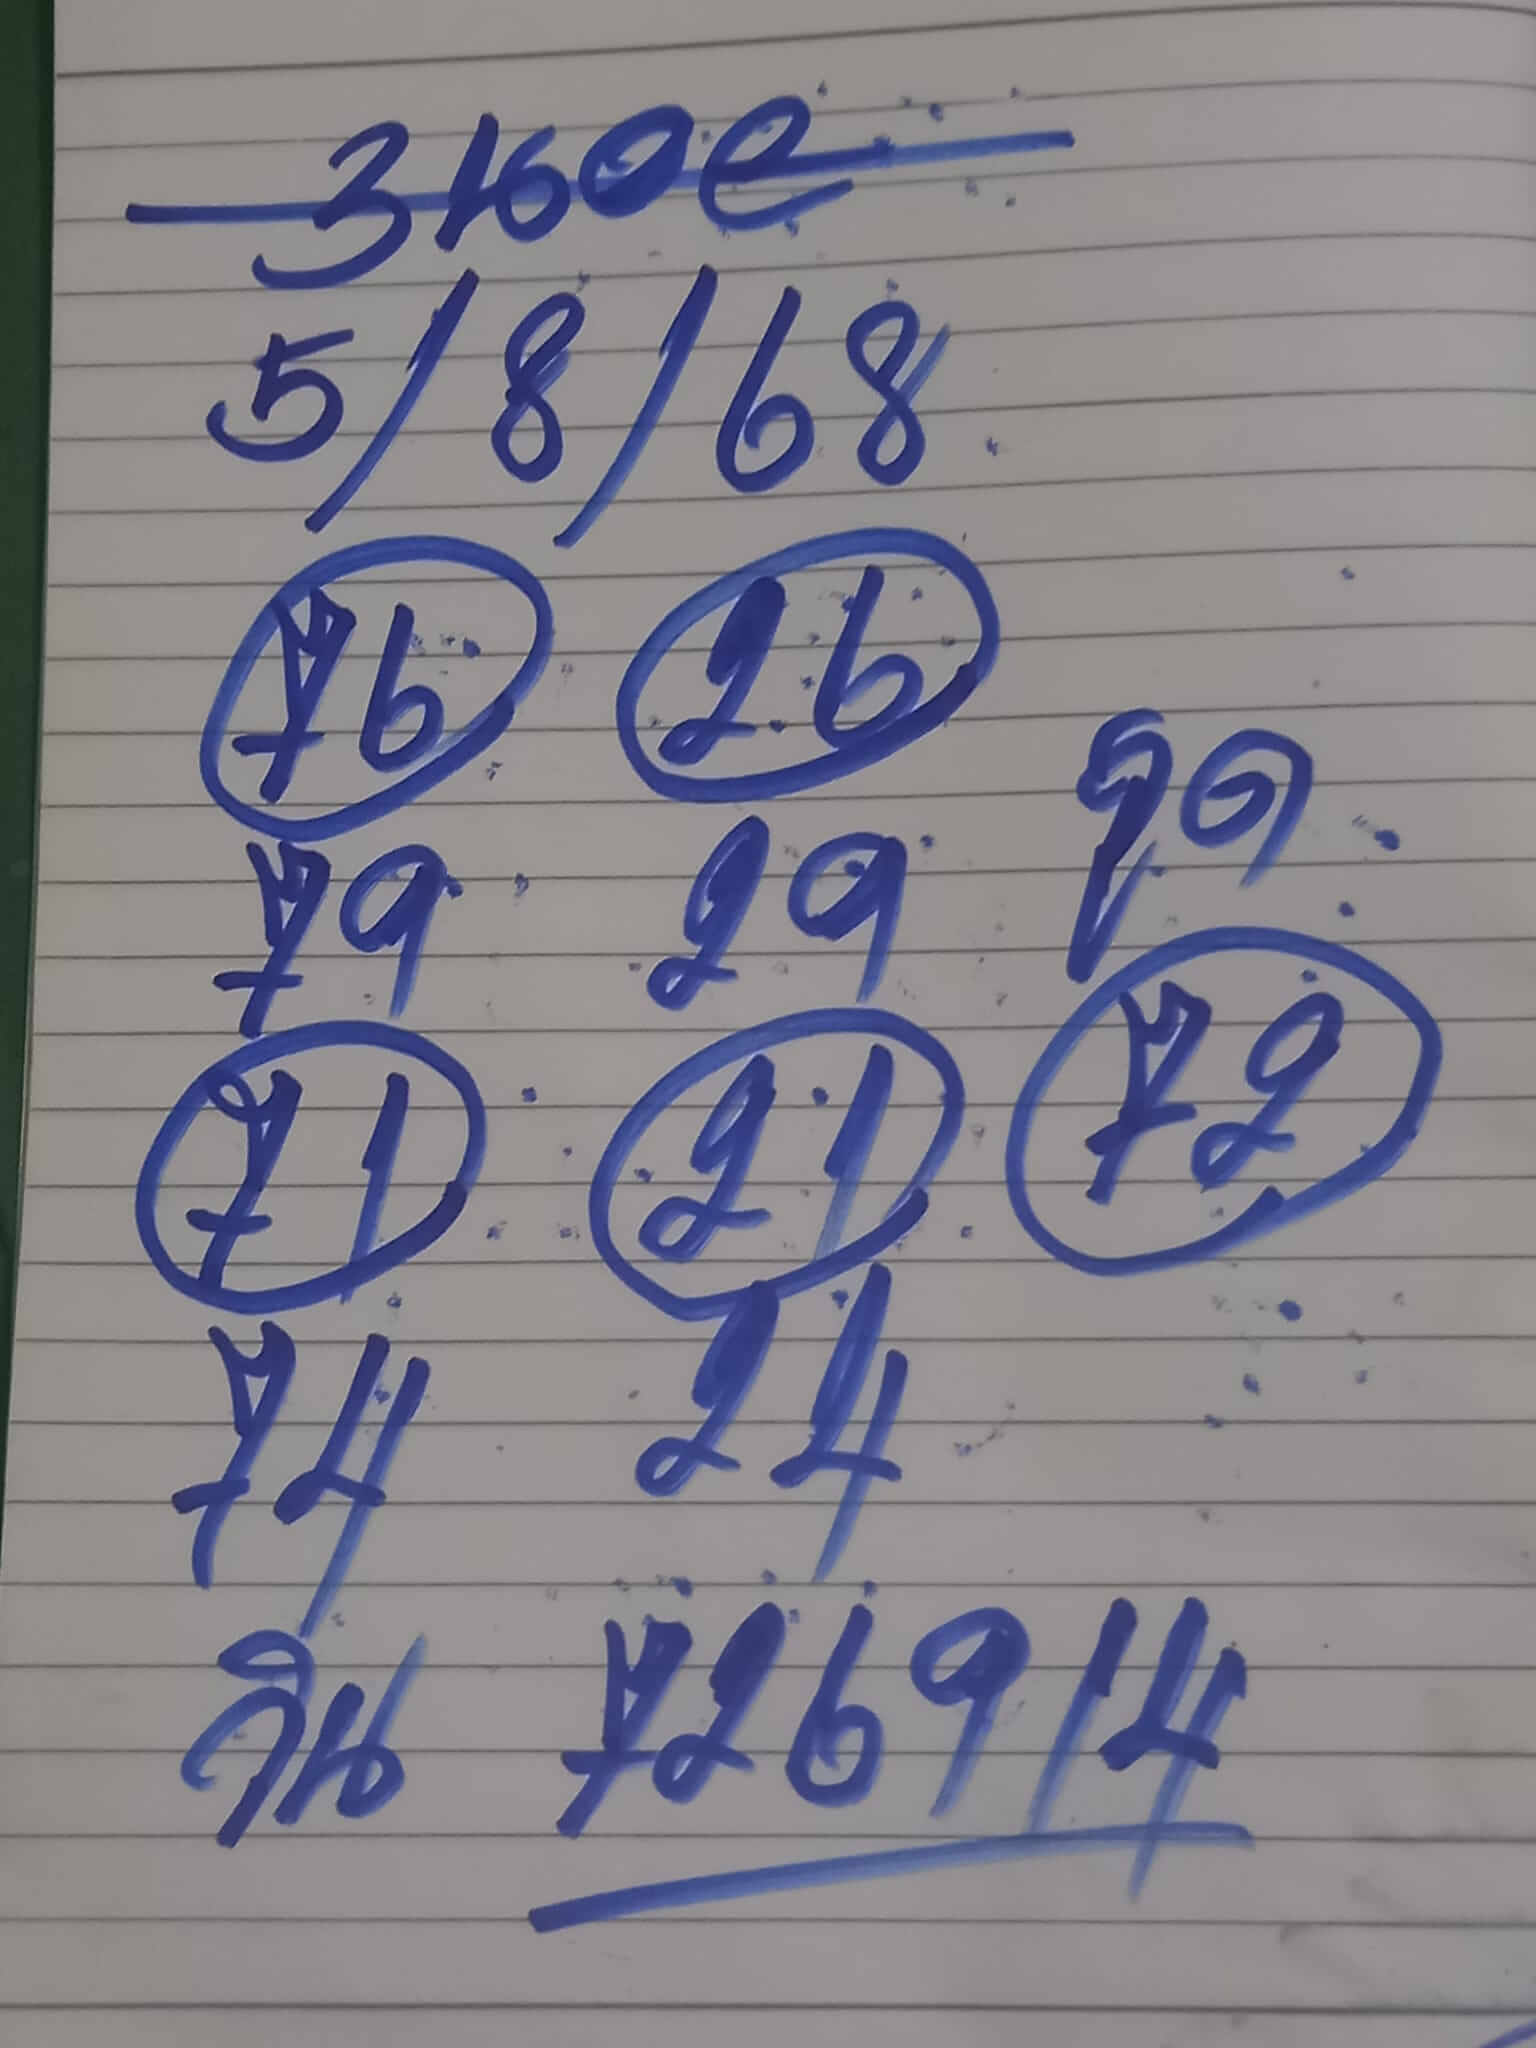 5/8/68
76 26
79 29 ชุด
71 21 72
74 24
วิน 726914